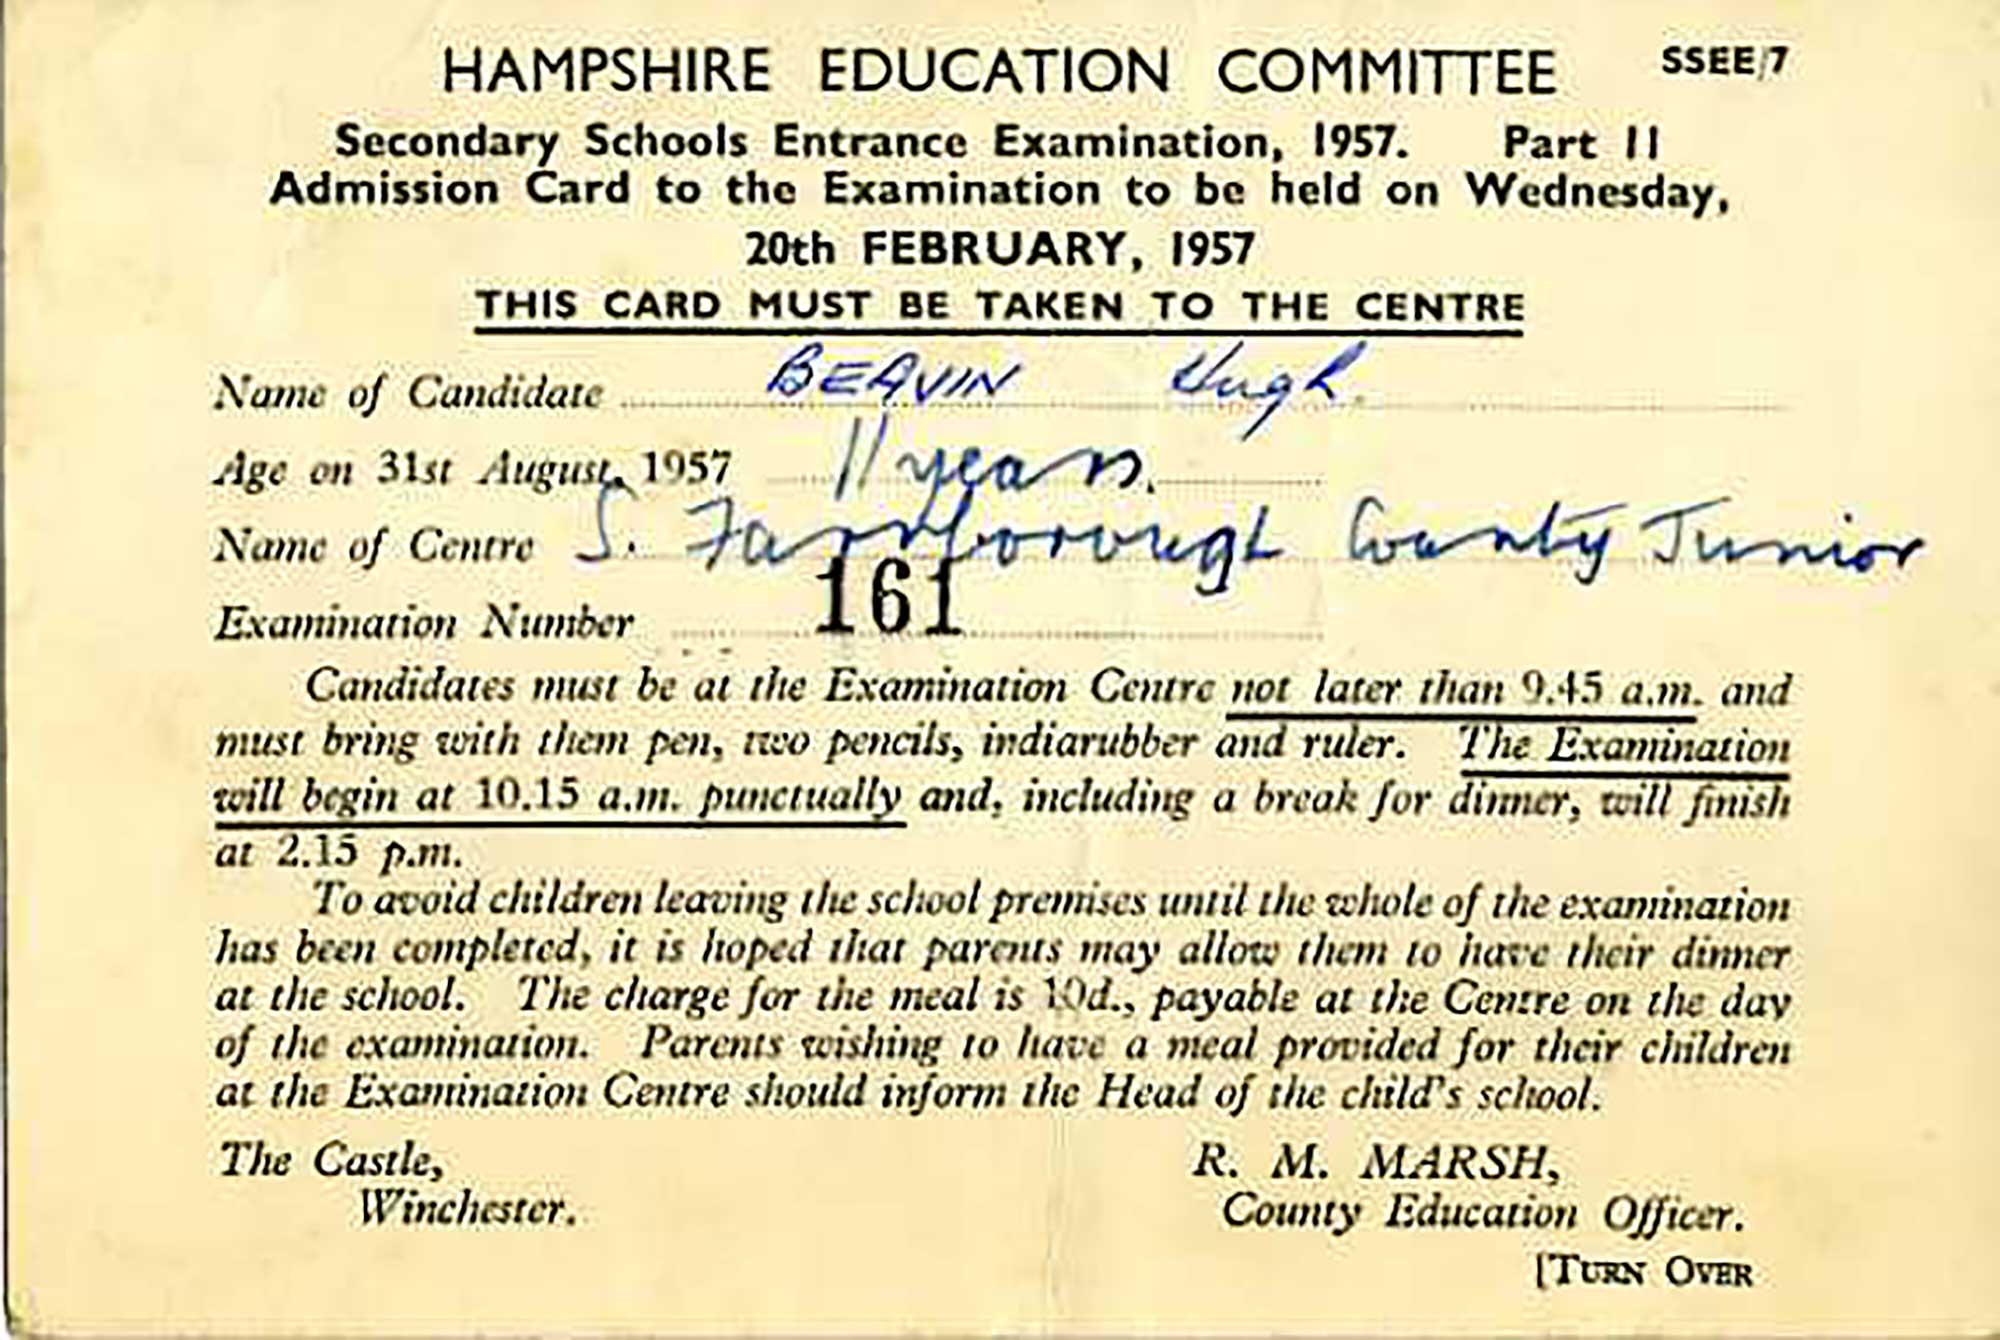 HAMPSHIRE EDUCATION COMMITTEE SSEE/7
Secondary Schools Entrance Examination, 1957. Part II
Admission Card to the Examination to be held on Wednesday,
20th FEBRUARY, 1957
THIS CARD MUST BE TAKEN TO THE CENTRE
Name of Candidate BEAVIN Hugh.
Age on 31st August, 1957 11 years.
Name of Centre S. Farnborough County Junior
Examination Number 161
Candidates must be at the Examination Centre not later than 9.45 a.m. and
must bring with them pen, two pencils, indiarubber and ruler. The Examination
will begin at 10.15 a.m. punctually and, including a break for dinner, will finish
at 2.15 p.m.
To avoid children leaving the school premises until the whole of the examination
has been completed, it is hoped that parents may allow them to have their dinner
at the school. The charge for the meal is 10d., payable at the Centre on the day
of the examination. Parents wishing to have a meal provided for their children
at the Examination Centre should inform the Head of the child's school.
The Castle, R. M. MARSH,
Winchester. County Education Officer.
[TURN OVER